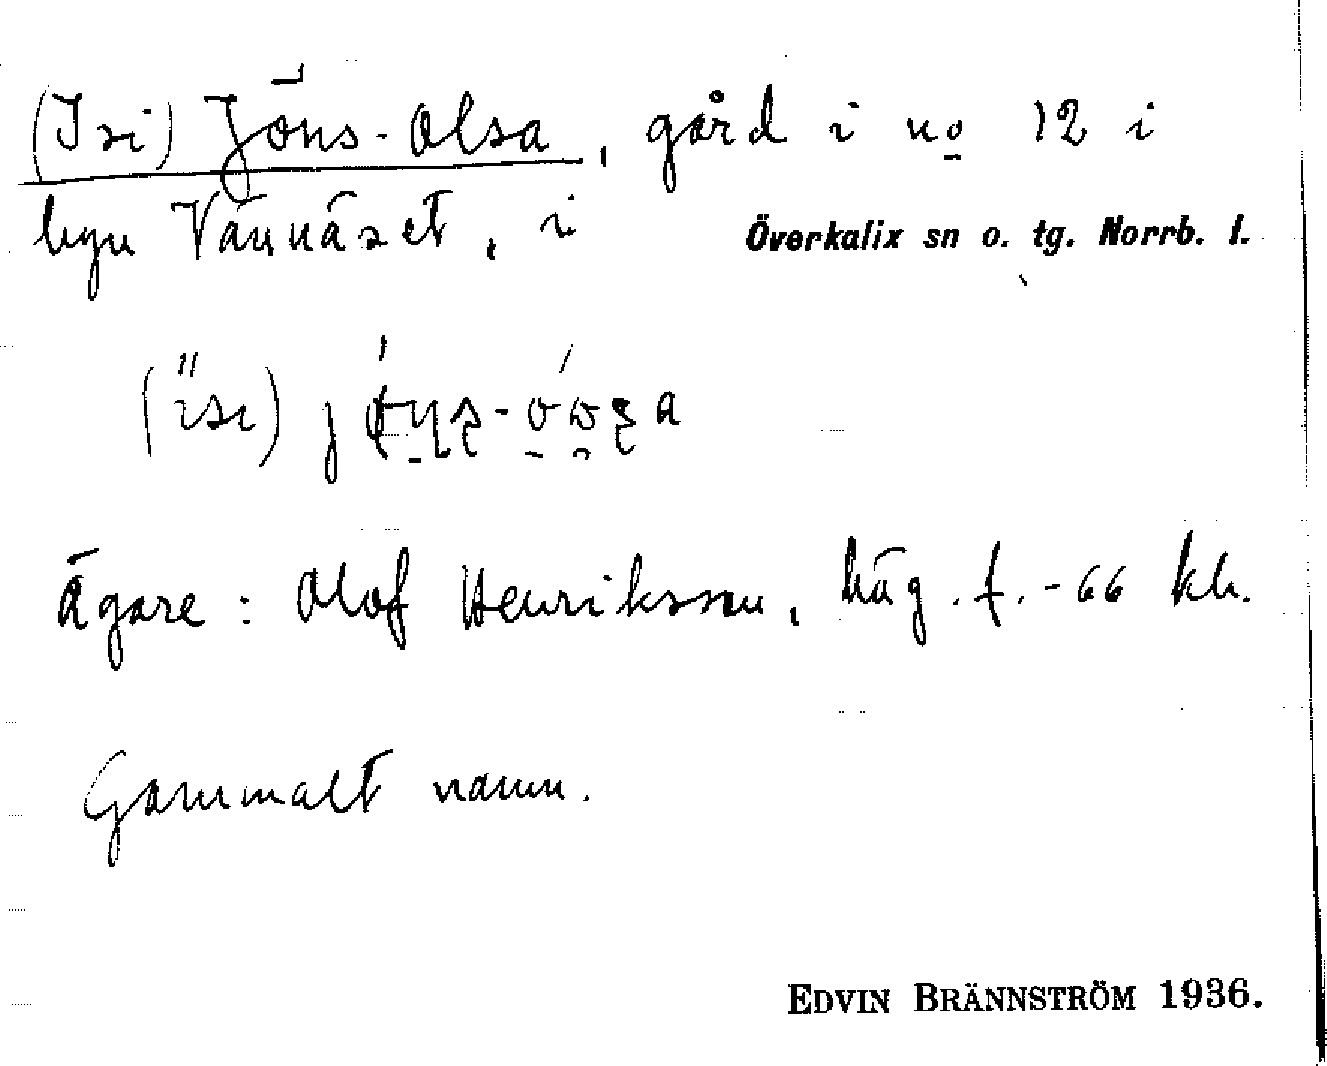 (Isi) Jöns-Olsa, gård i no 12 i
byn Vännäset, i Överkalix sn o. tg. Norrb. l.
Ägare: Olof Henriksson, häg. f. -66 kh.
Gammalt namn.
EDVIN BRÄNNSTRÖM 1936.